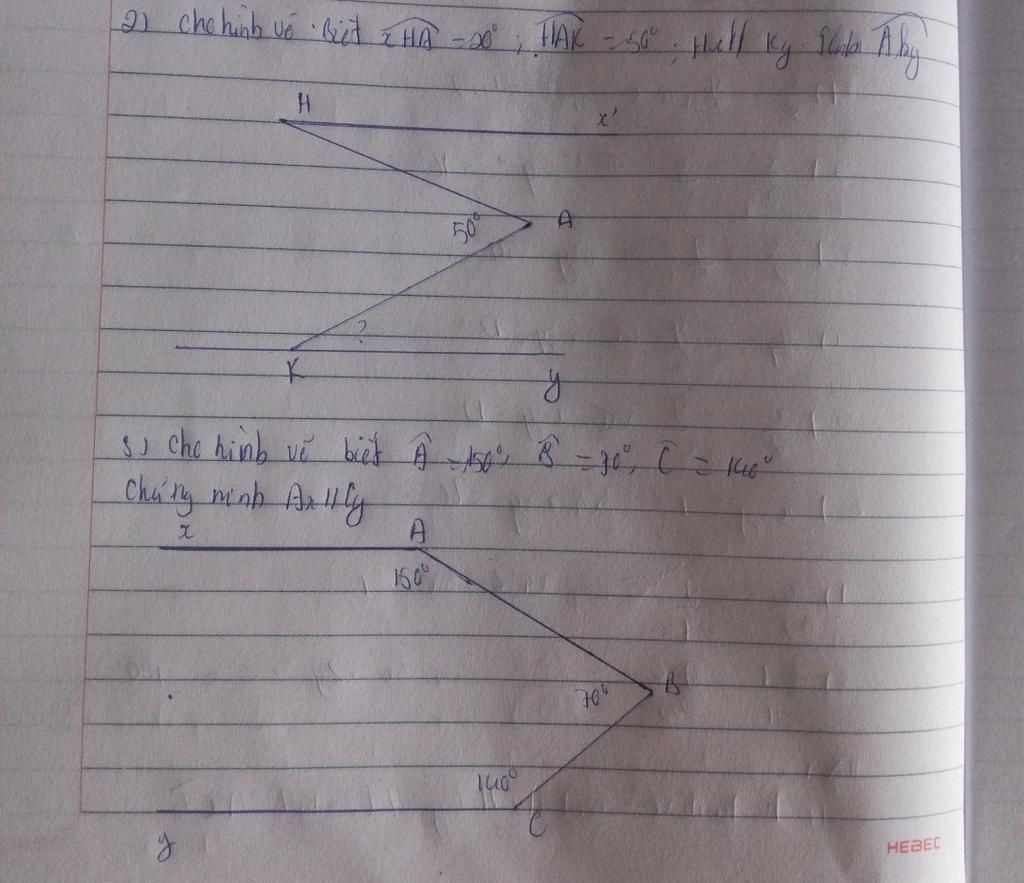 2) cho hình vẽ. Biết xHA = 20°; HAK = 50°; Hx // Ky. Tính AKy
H
x'
50°
A
?
K
y
3) cho hình vẽ biết A = 150°, B = 70°, C = 140°
Chứng minh Ax // Cy
x
A
150°
70°
B
140°
C
y
HEBEC